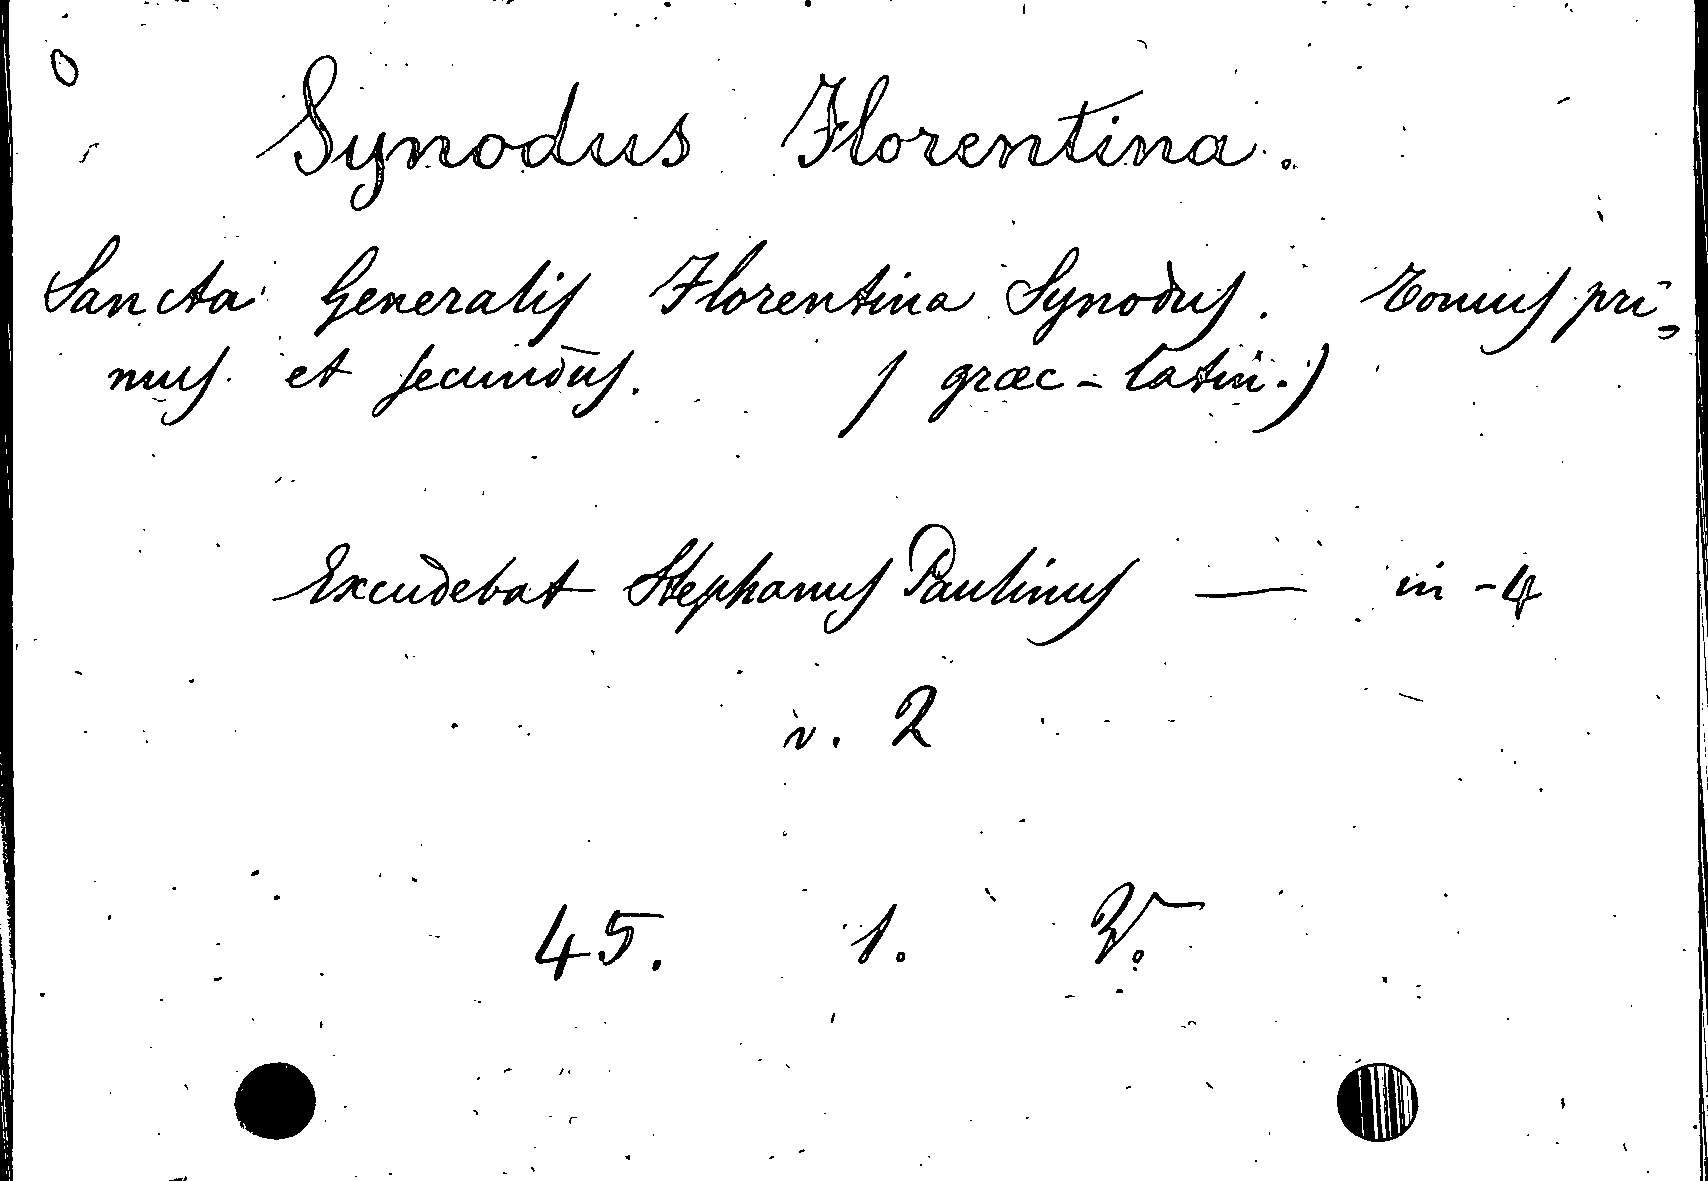 Synodus Florentina.
Sancta Generalis Florentina Synodus. Tomus pri-
mus et secundus. (græc-latin.)
Excudebat Stephanus Paulinus — in-4
v. 2
45. 1. V.